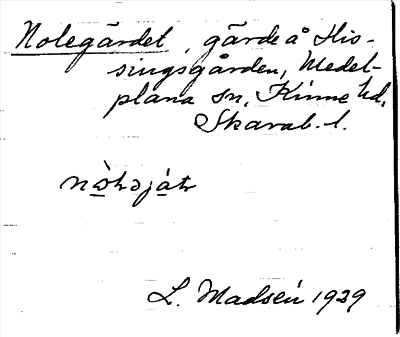 Nolegärdet, gärde å His-
singsgården, Medel-
plana sn, Kinne hd,
Skarab. l.
L. Madsén 1929